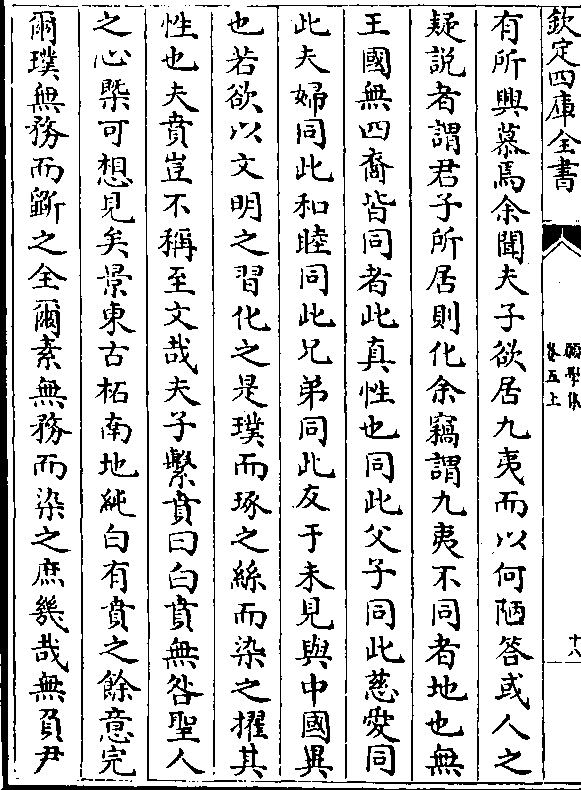 欽定四庫全書
願學集
卷五上
十八
有所興慕焉余聞夫子欲居九夷而以何陋答或人之
疑説者謂君子所居則化余竊謂九夷不同者地也無
王國無四裔皆同者此真性也同此父子同此慈愛同
此夫婦同此和睦同此兄弟同此友于未見與中國異
也若欲以文明之習化之是璞而琢之絲而染之擢其
性也夫賁豈不稱至文哉夫子繫賁曰白賁無咎聖人
之心槩可想見矣景東古柘南地純白有賁之餘意完
爾璞無務而斵之全爾素無務而染之庶幾哉無負尹